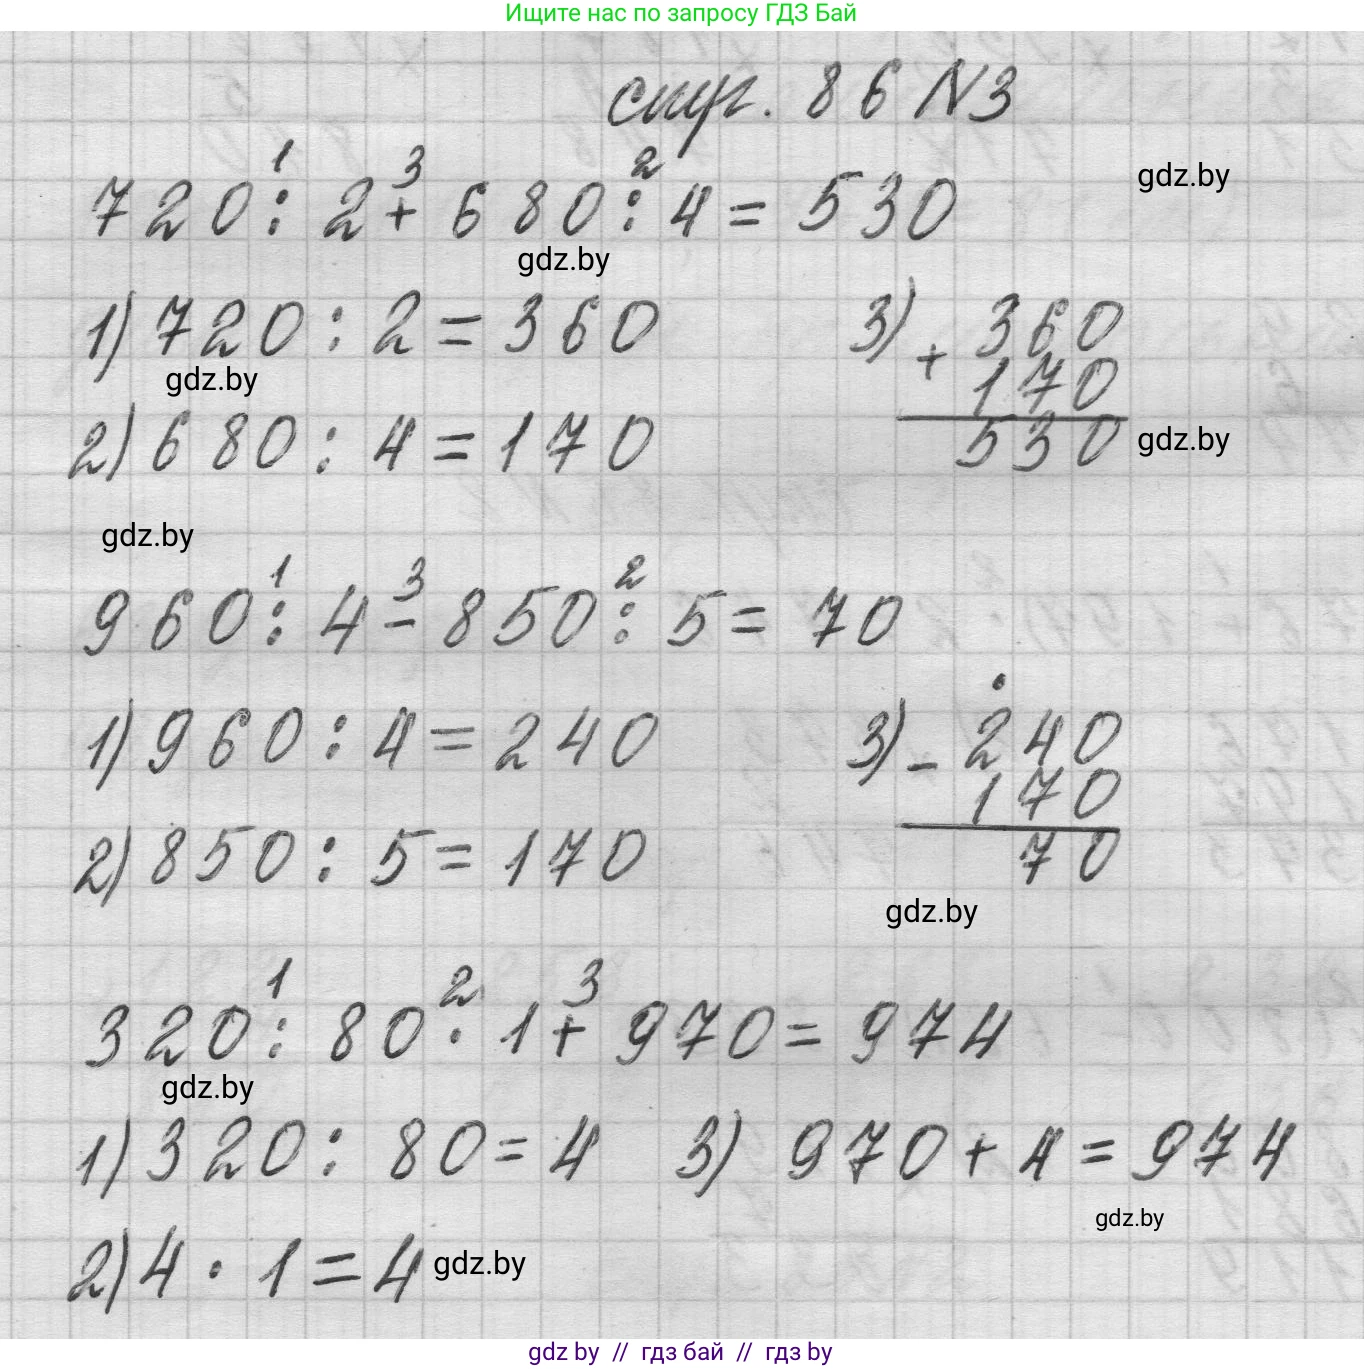 Ищите нас по запросу ГДЗ Бай
стр. 86 N3
gdz.by
720 : 2 + 680 : 4 = 530
1 3 2
gdz.by
1) 720 : 2 = 360
gdz.by
2) 680 : 4 = 170
3) + 360
170
530
gdz.by
gdz.by
1 3 2
960 : 4 - 850 : 5 = 70
1) 960 : 4 = 240
2) 850 : 5 = 170
3) - 240
170
70
gdz.by
1 2 3
320 : 80 · 1 + 970 = 974
gdz.by
1) 320 : 80 = 4
3) 970 + 4 = 974
gdz.by
2) 4 · 1 = 4
gdz.by
gdz by // гдз бай // гдз by